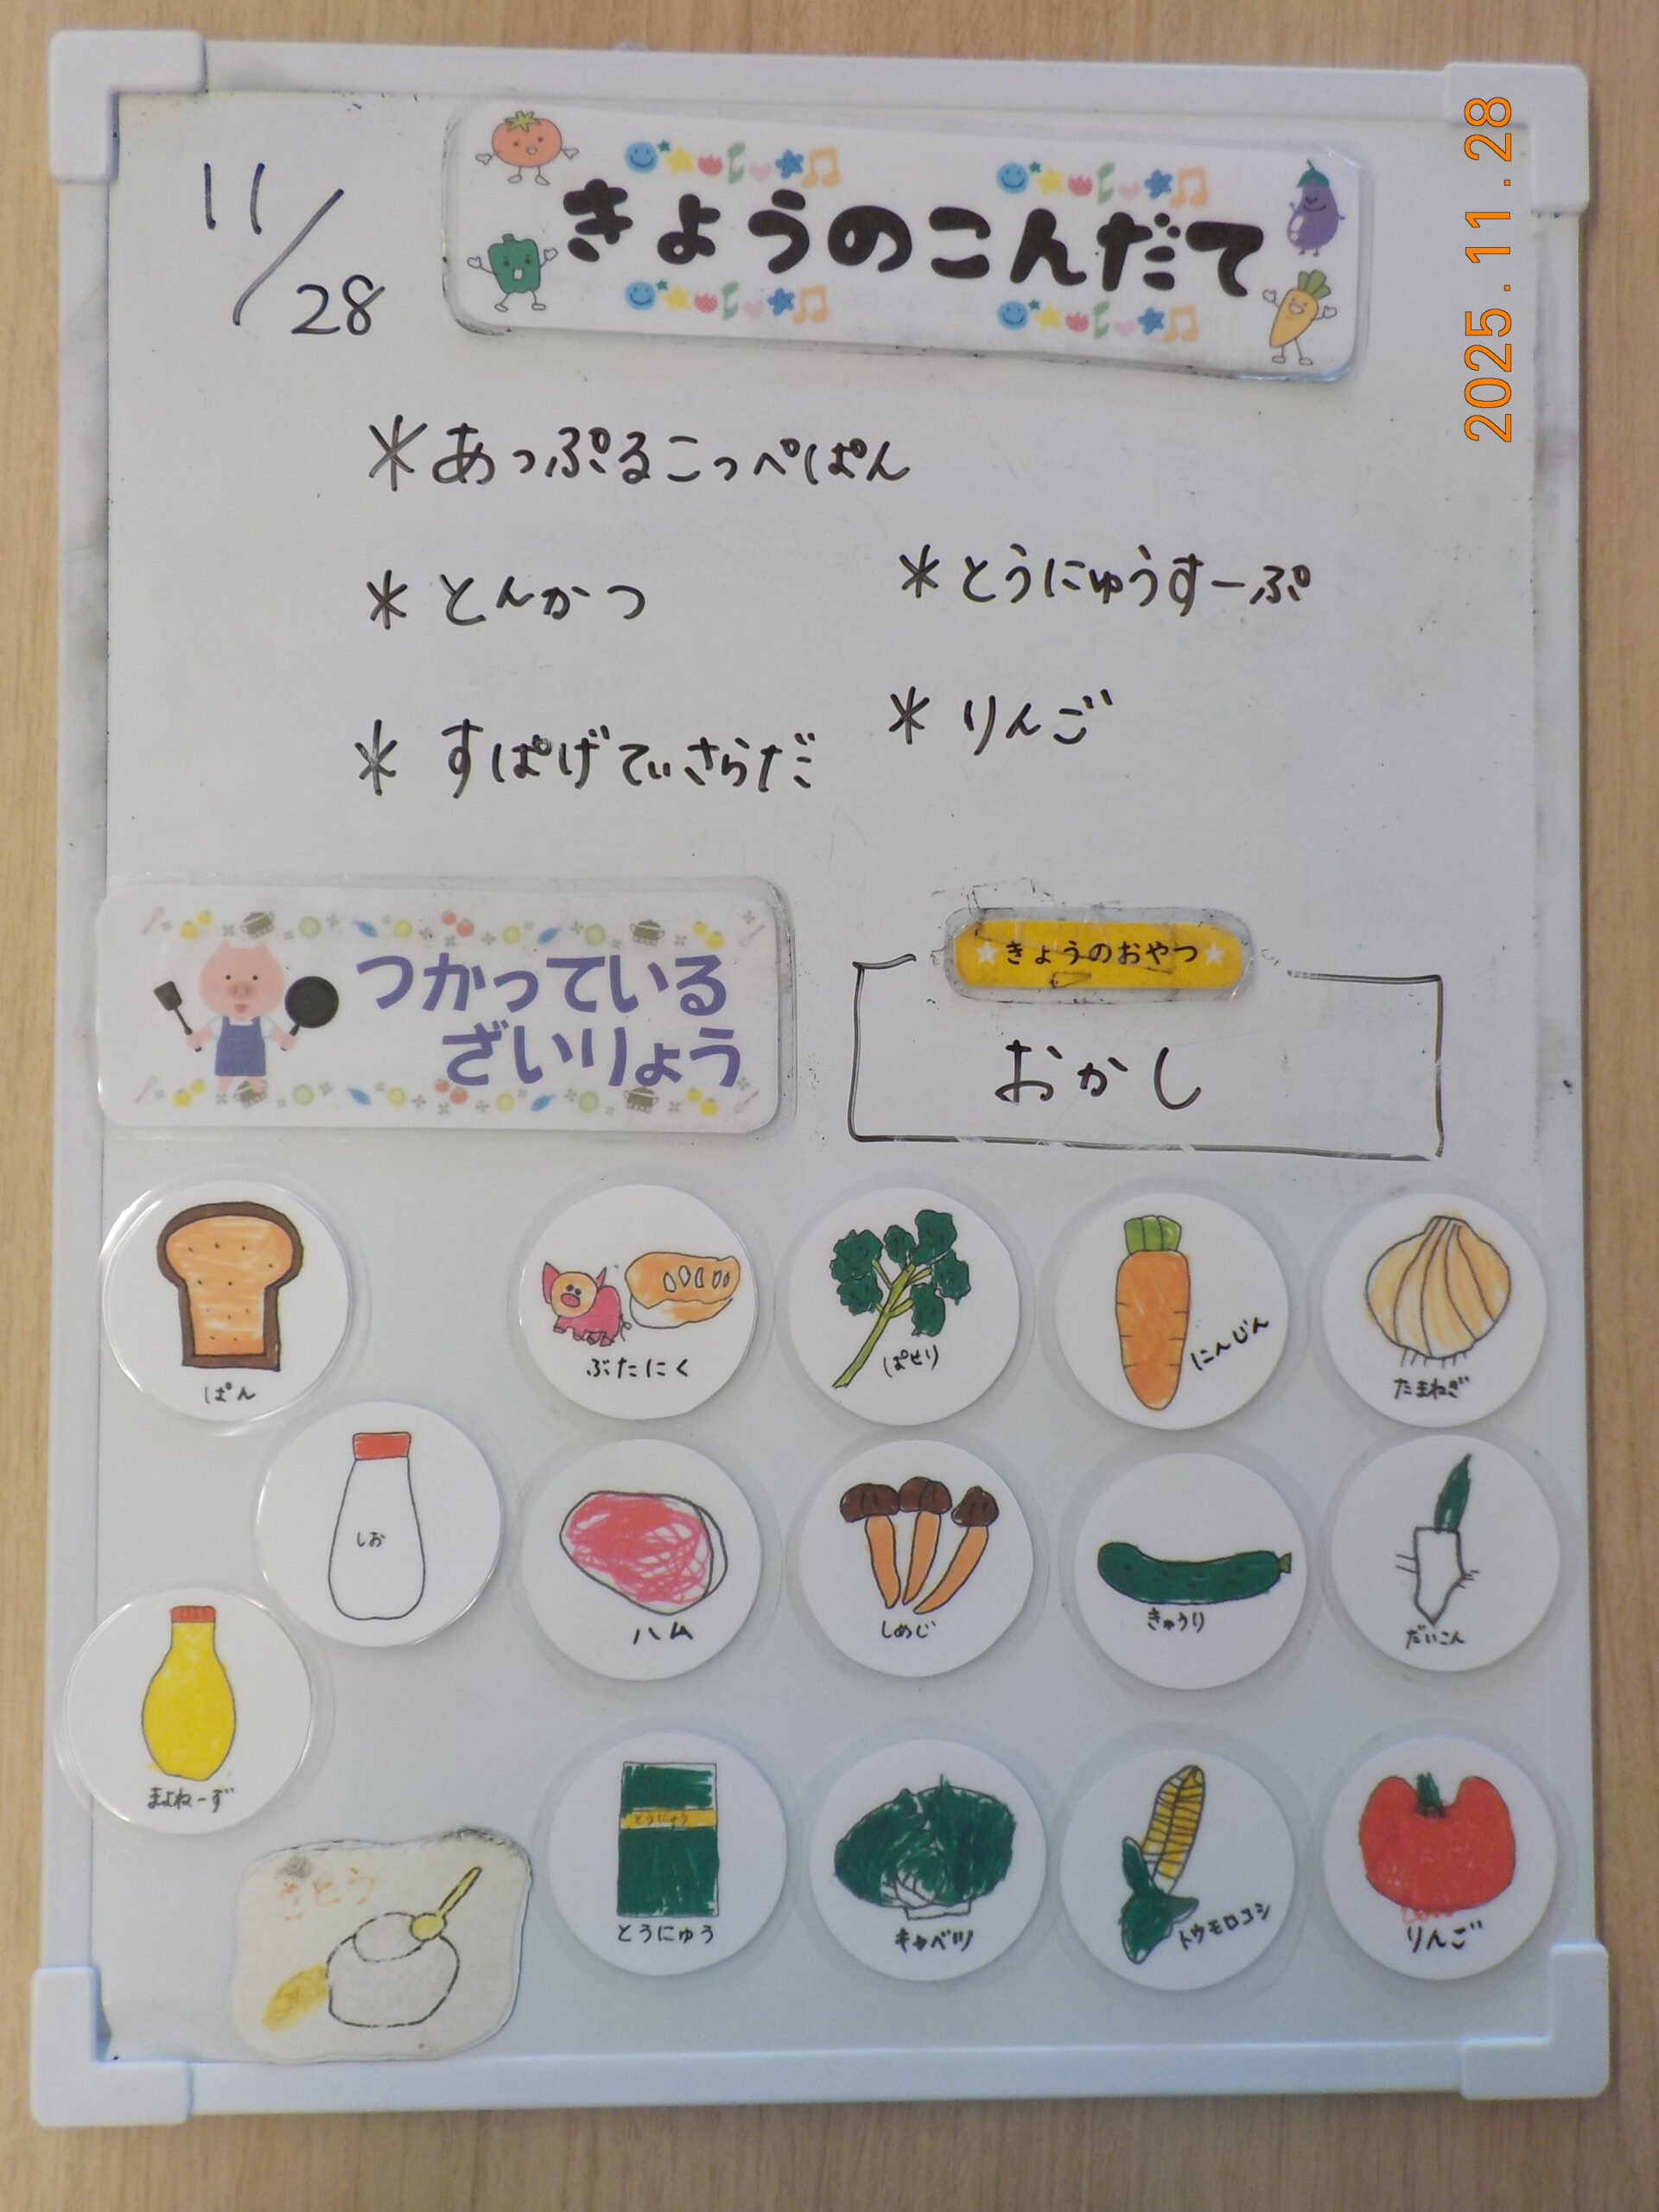 11/28
きょうのこんだて
2025.11.28
*あっぷるこっぺぱん
*とんかつ
*すぱげてぃさらだ
*とうにゅうすーぷ
*りんご
つかっている
ざいりょう
★きょうのおやつ★
おかし
ぱん
ぶたにく
ぱせり
にんじん
たまねぎ
しお
ハム
しめじ
きゅうり
だいこん
まよねーず
さとう
とうにゅう
とうにゅう
キャベツ
トウモロコシ
りんご